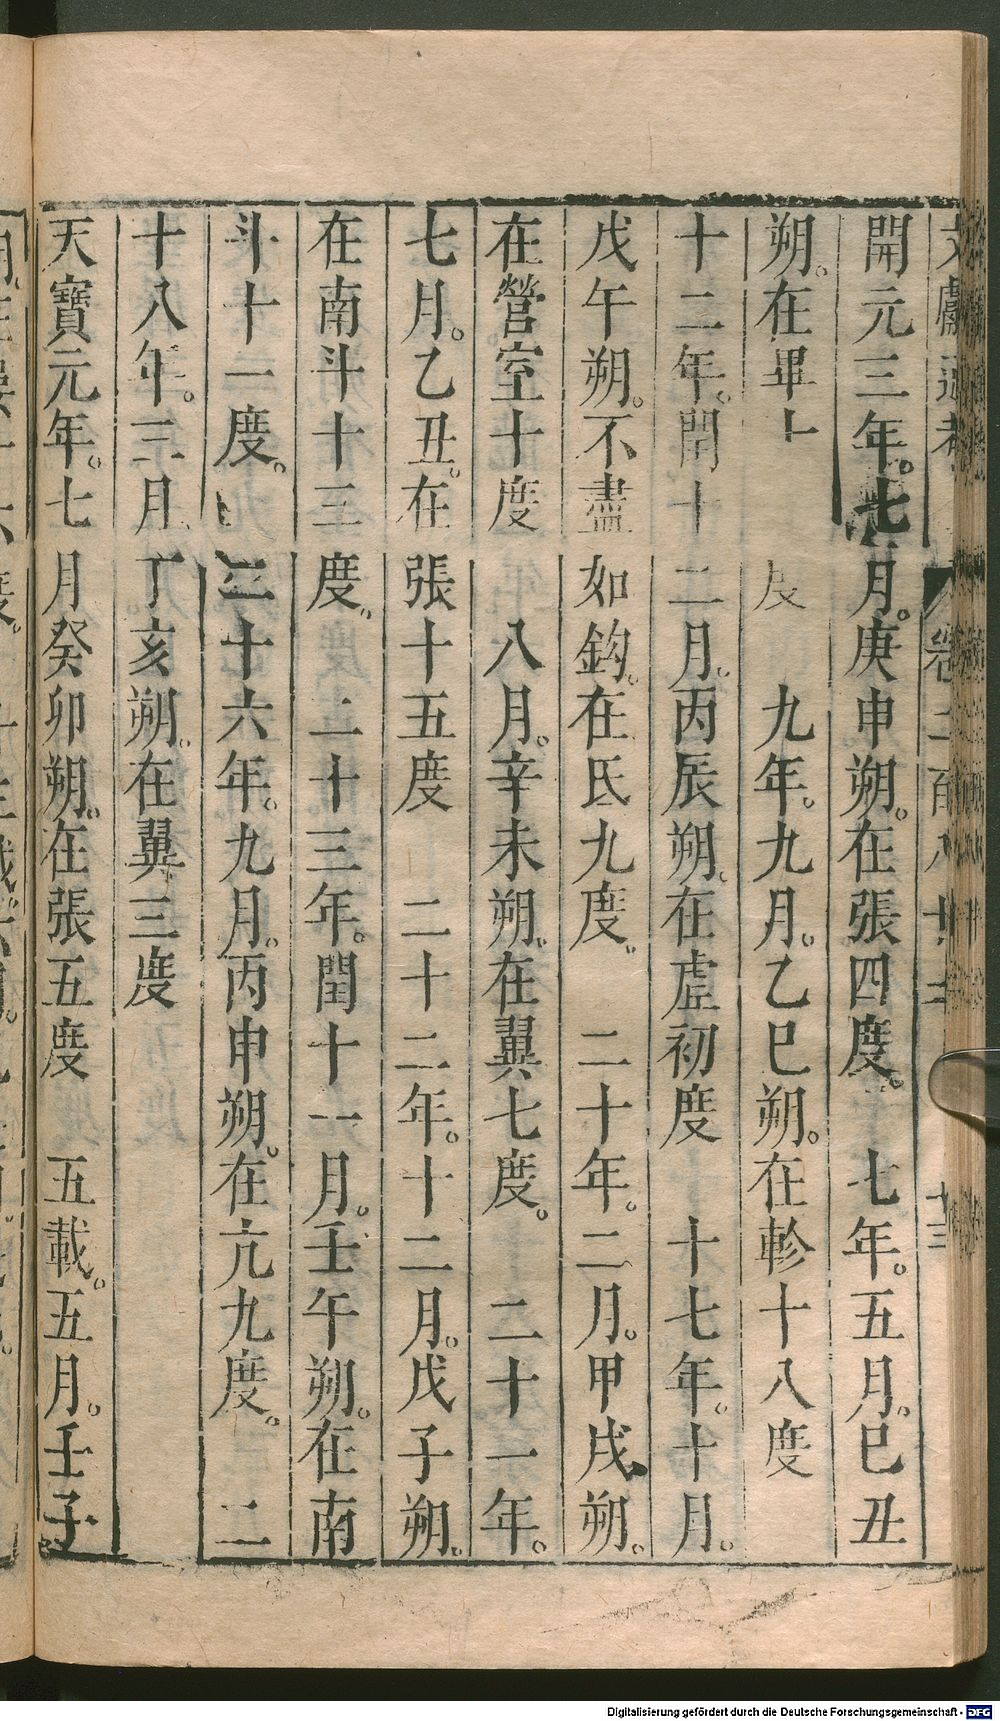 開元三年。七月。庚申朔。在張四度。　七年。五月。已丑
朔。在畢十　度　九年。九月。乙巳朔。在軫十八度
十二年。閏十二月。丙辰朔。在虛初度　十七年。十月。
戊午朔。不盡如鉤。在氐九度。　二十年。二月。甲戌朔。
在營室十度　八月。辛未朔。在翼七度。　二十一年。
七月。乙丑。在張十五度　二十二年。十二月。戊子朔。
在南斗十三度。　二十三年。閏十一月。壬午朔。在南
斗十一度。　二十六年。九月。丙申朔。在亢九度。　二
十八年。三月。丁亥朔。在翼三度
天寶元年。七月癸卯朔。在張五度　五載。五月。壬子
Digitalisierung gefördert durch die Deutsche Forschungsgemeinschaft - DFG